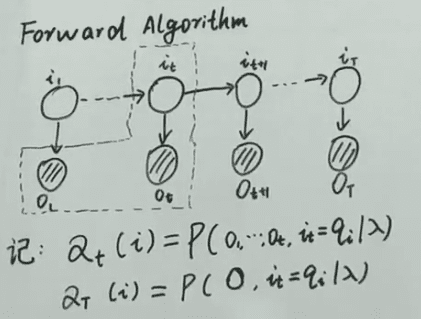 Forward Algorithm
i₁ iₜ iₜ₊₁ i_T
o₁ oₜ oₜ₊₁ o_T
记: αₜ(i) = P(o₁,…,oₜ, iₜ=qᵢ|λ)
α_T(i) = P(O, iₜ=qᵢ|λ)